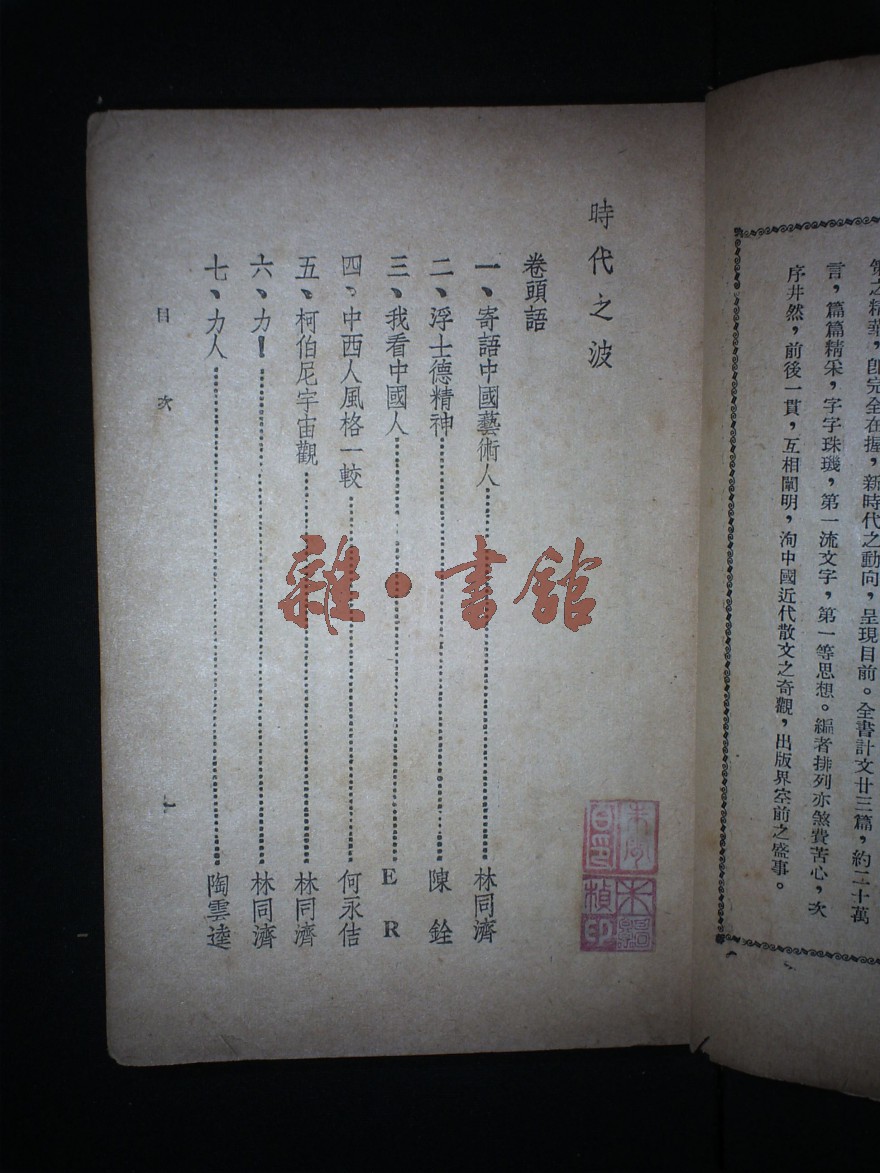 第之精華，卽完全在握，新時代之動向，呈現目前。全書計文廿三篇，約二十萬
言，篇篇精采，字字珠璣，第一流文字，第一等思想。編者排列亦煞費苦心，次
序井然，前後一貫，互相闡明，洵中國近代散文之奇觀，出版界空前之盛事。
時代之波
卷頭語
一、寄語中國藝術人 林同濟
二、浮士德精神 陳銓
三、我看中國人 E R
四、中西人風格一較 何永佶
五、柯伯尼宇宙觀 林同濟
六、力！ 林同濟
七、力人 陶雲逵
目次 一
雜·書館